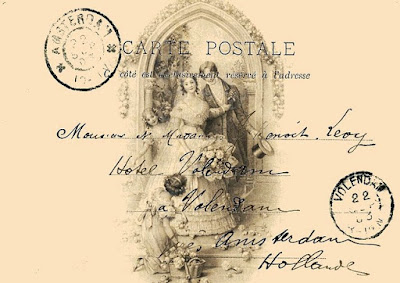 AMSTERDAM
CARTE POSTALE
Ce côté est exclusivement réservé à l'adresse
Monsieur & Madame Benoit Levy
Hôtel Volendam
à Volendam
VOLENDAM
22
près Amsterdam
Hollande